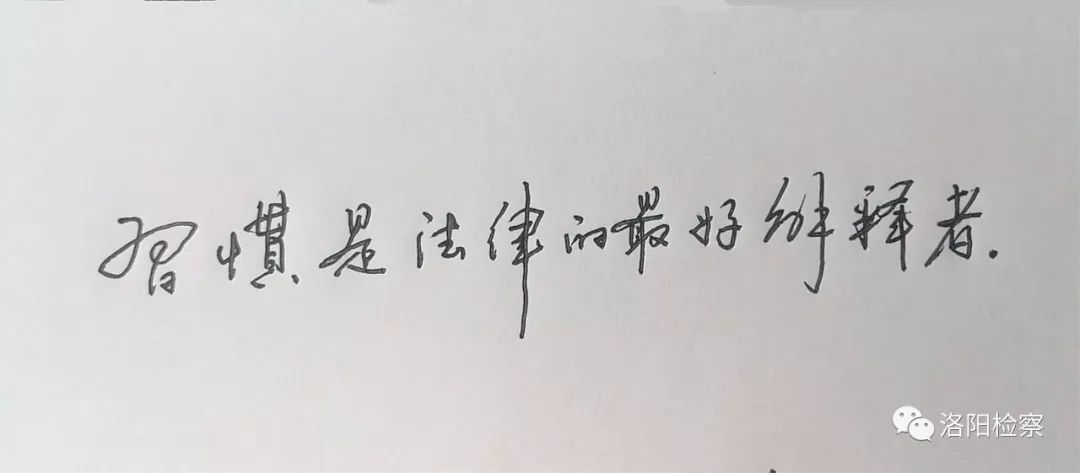 習慣是法律的最好解释者.
洛阳检察